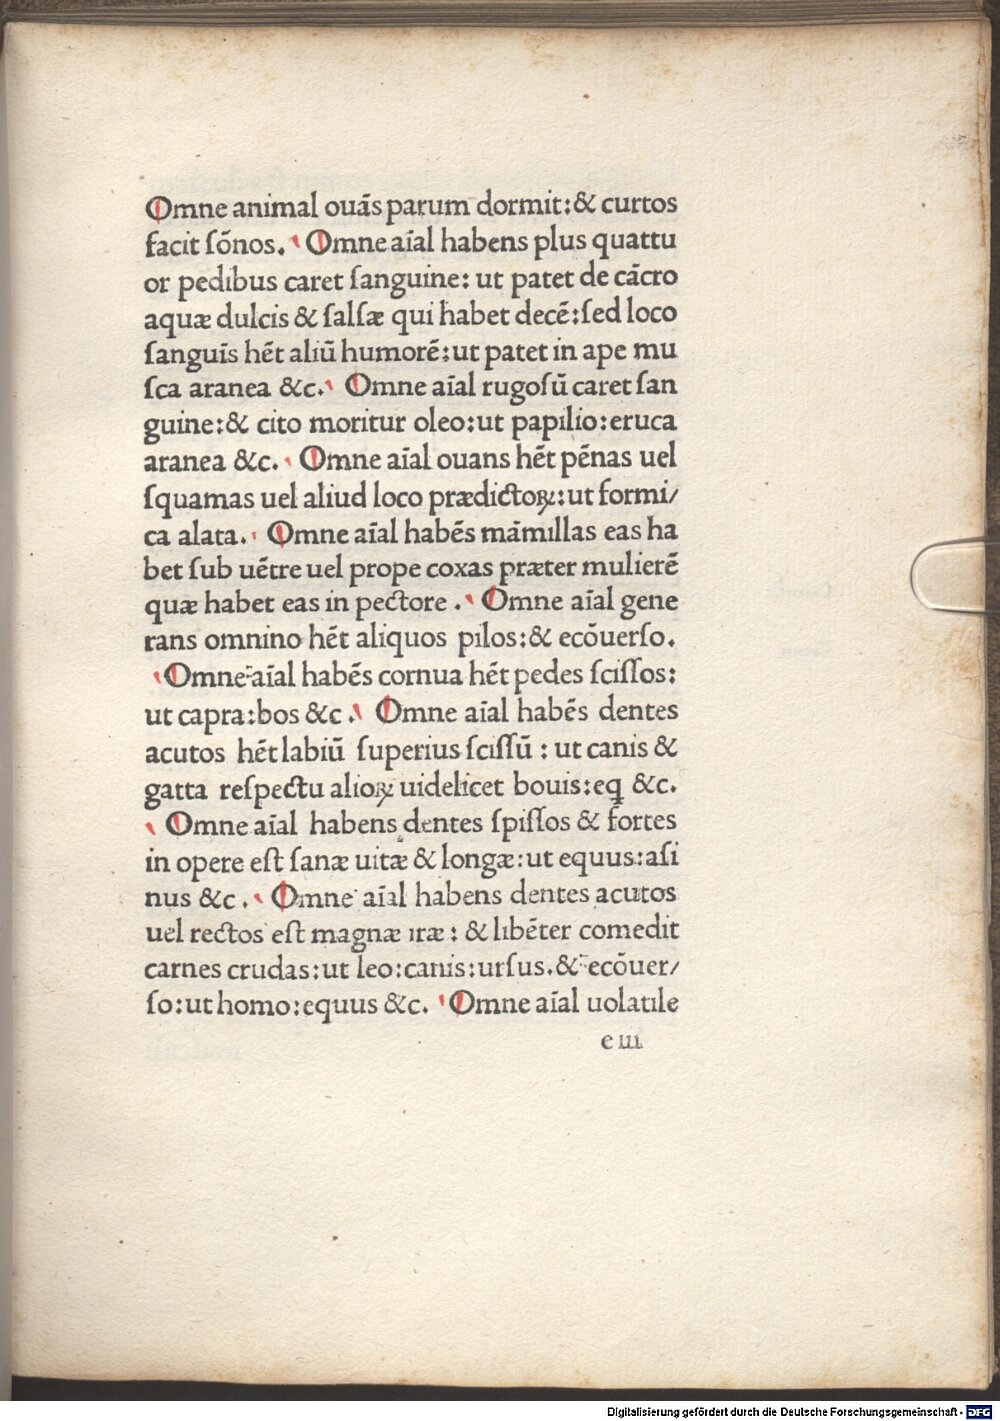 Omne animal ouãs parum dormit:& curtos
facit ſõnos. Omne aīal habens plus quattu
or pedibus caret ſanguine: ut patet de cãcro
aquæ dulcis & ſalſæ qui habet decẽ:ſed loco
ſanguīs hẽt aliũ humorẽ:ut patet in ape mu
ſca aranea &c. Omne aīal rugoſũ caret ſan
guine:& cito moritur oleo:ut papilio:eruca
aranea &c. Omne aīal ouans hẽt pẽnas uel
ſquamas uel aliud loco prædictoꝝ:ut formi/
ca alata. Omne aīal habẽs mãmillas eas ha
bet ſub uẽtre uel prope coxas præter mulierẽ
quæ habet eas in pectore . Omne aīal gene
rans omnino hẽt aliquos pilos:& ecõuerſo.
Omne aīal habẽs cornua hẽt pedes ſciſſos:
ut capra:bos &c . Omne aīal habẽs dentes
acutos hẽt labiũ ſuperius ſciſſũ : ut canis &
gatta reſpectu alioꝝ uidelicet bouis:eq̨ &c.
Omne aīal habens dentes ſpiſſos & fortes
in opere eſt ſanæ uitæ & longæ:ut equus:aſi
nus &c . Omne aīal habens dentes acutos
uel rectos eſt magnæ iræ : & libẽter comedit
carnes crudas:ut leo:canis:urſus.& ecõuer/
ſo:ut homo:equus &c. Omne aīal uolatile
e iii
Digitalisierung gefördert durch die Deutsche Forschungsgemeinschaft - DFG